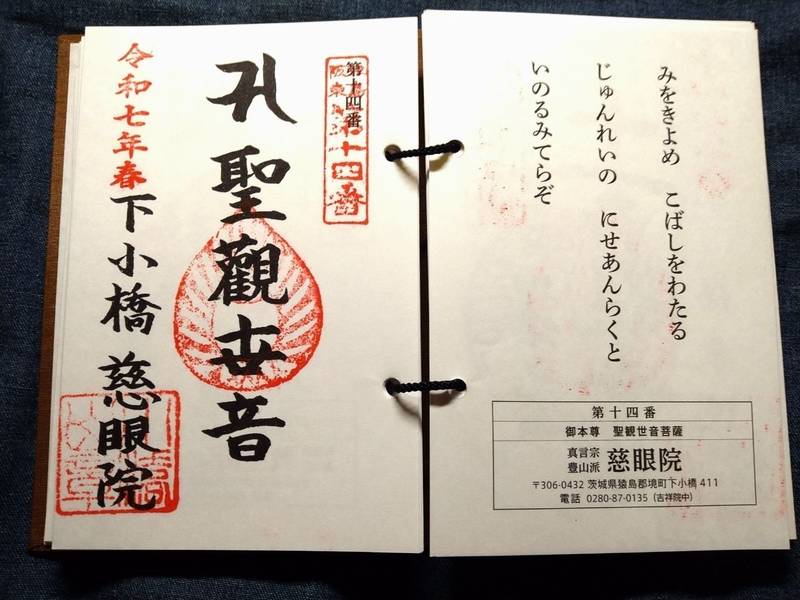 みをきよめ　こばしをわたる
じゅんれいの　にせあんらくと
いのるみてらぞ
第十四番
御本尊　聖観世音菩薩
真言宗
豊山派
慈眼院
〒306-0432 茨城県猿島郡境町下小橋 411
電話 0280-87-0135（吉祥院中）
第十四番
聖觀世音
令和七年春
下小橋 慈眼院